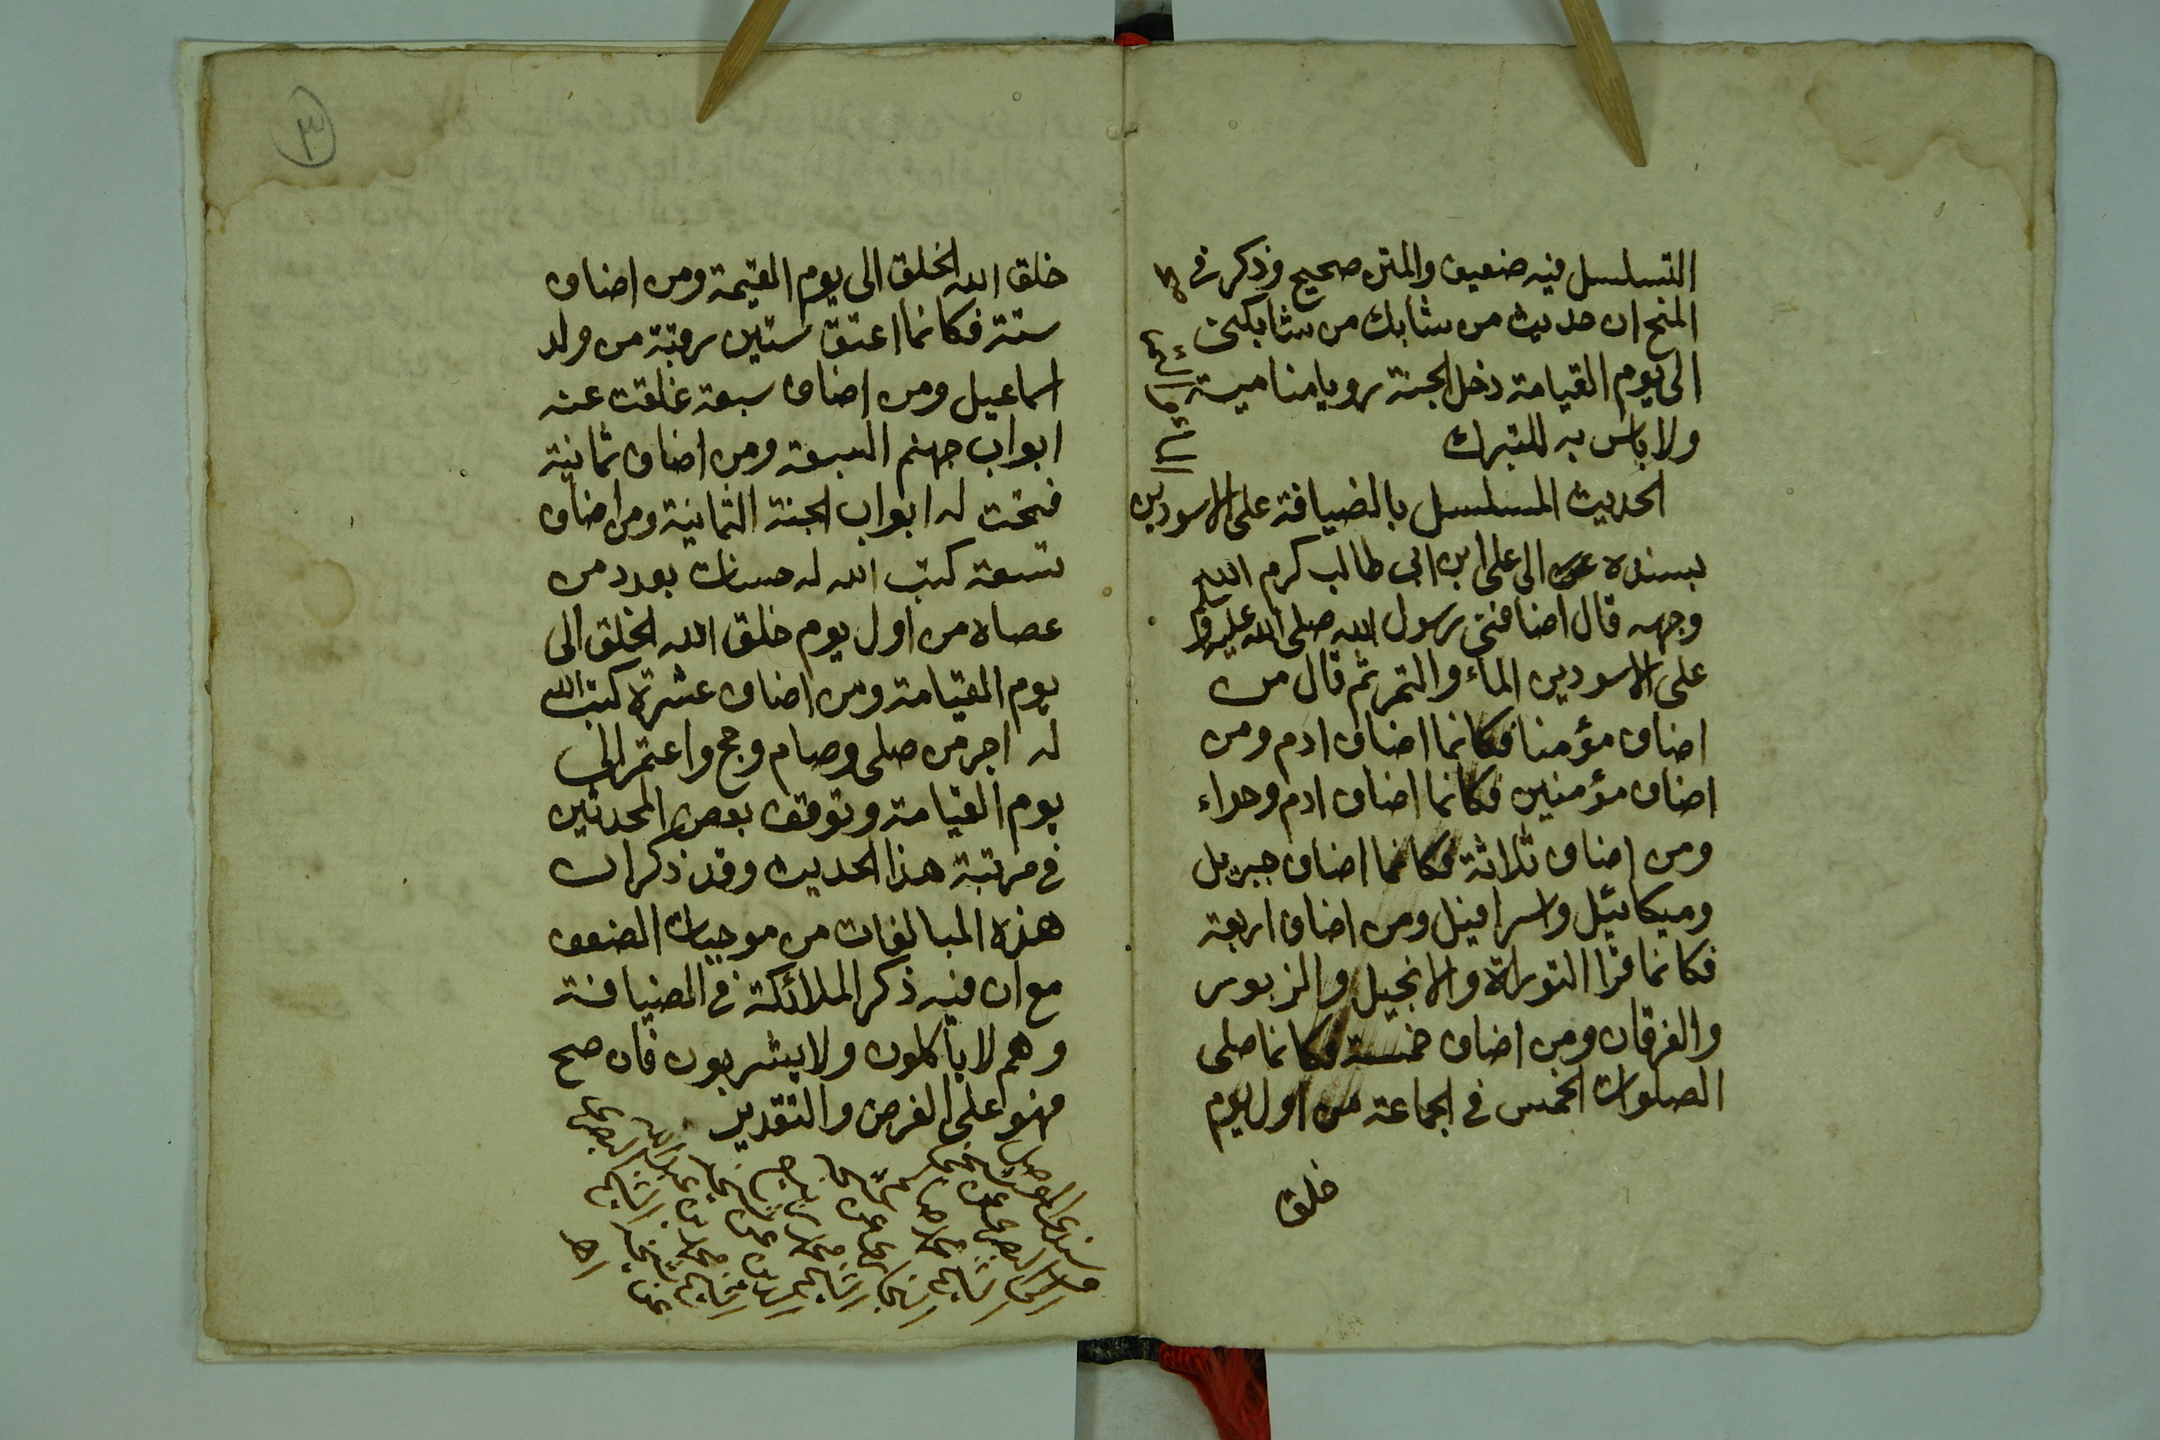 التسلسل فيه ضعيف والمتن صحيح وذكر في
المنح ان حديث من شابك من شابكني
الى يوم القيامة دخل الجنة رويا منامية
ولا باس به للتبرك
الحديث المسلسل بالضيافة على الاسودين
بسنده الى على ابن ابى طالب كرم الله
وجهه قال اضافنى رسول الله صلى الله عليه وسلم
على الاسودين الماء والتمر ثم قال من
اضاف مؤمنا فكانما اضاف ادم ومن
اضاف مؤمنين فكانما اضاف ادم وحواء
ومن اضاف ثلاثة فكانما اضاف جبريل
وميكائيل واسرافيل ومن اضاف اربعة
فكانما قرا التوراة والانجيل والزبور
والفرقان ومن اضاف خمسة فكانما صلى
الصلوات الخمس في الجماعة من اول يوم
خلق
٣
خلق الله الخلق الى يوم القيمة ومن اضاف
ستة فكانما اعتق ستين رقبة من ولد
اسماعيل ومن اضاف سبعة غلقت عنه
ابواب جهنم السبعة ومن اضاف ثمانية
فتحت له ابواب الجنة الثمانية ومن اضاف
تسعة كتب الله له حسنات بعدد من
عصاه من اول يوم خلق الله الخلق الى
يوم القيامة ومن اضاف عشرة كتب الله
له اجر من صلى وصام وحج واعتمر الى
يوم القيامة وتوقف بعض المحدثين
في مرتبة هذا الحديث وقد ذكر ان
هذه المبالغات من موجبات الضعف
مع ان فيه ذكر الملائكة في الضيافة
وهم لا ياكلون ولا يشربون فان صح
فهو على الفرض والتقدير